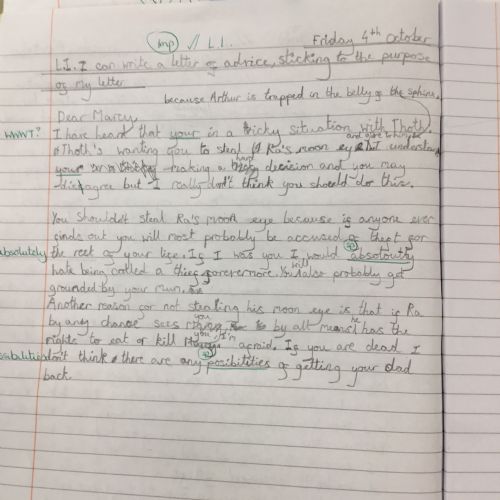 Imp ✓✓ L.I.
Friday 4th October
L.I. I can write a letter of advice, sticking to the purpose
of my letter
because Arthur is trapped in the belly of the sphinx.
Dear Marcy,
WWWT? I have heard that your in a tricky situation with Thoth.
Thoth's wanting you to steal Ra's moon eye but understand
your making a hard decision and you may
disagree but I really don't think you should do this.
You shouldn't steal Ra's moon eye because if anyone ever
finds out you will most probably be accused of theft for
absolutely the rest of your life. If I was you I would absoloutly
hate being called a thief forevermore. You will also probably get
grounded by your mum.
Another reason for not stealing his moon eye is that if Ra
by any chance sees you by all means he has the
rights to eat or kill you I'm afraid. If you are dead I
don't think there are any posibilities of getting your dad
back